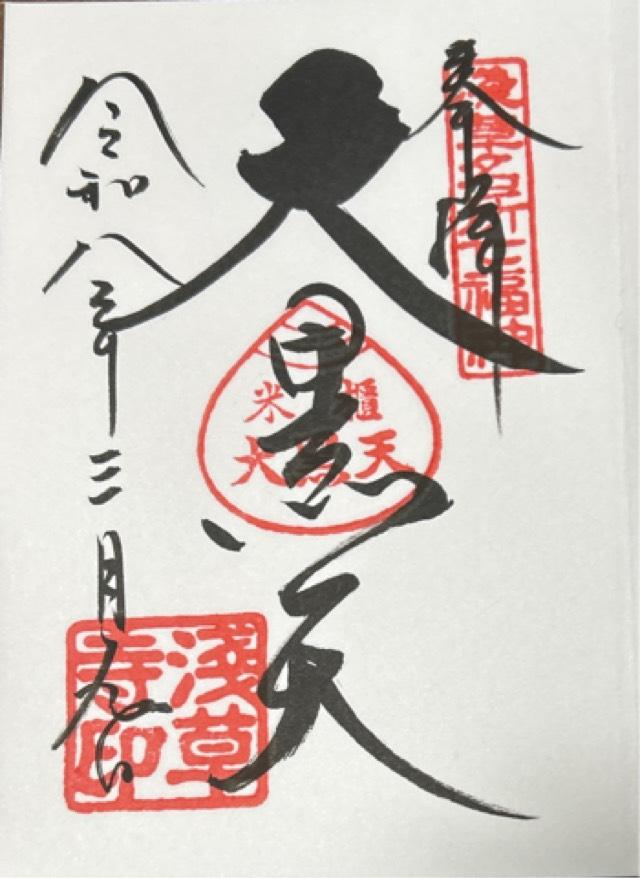 奉拝
浅草名所七福神
大黒天
米櫃
大黒天
令和八年三月九日
淺草
寺印